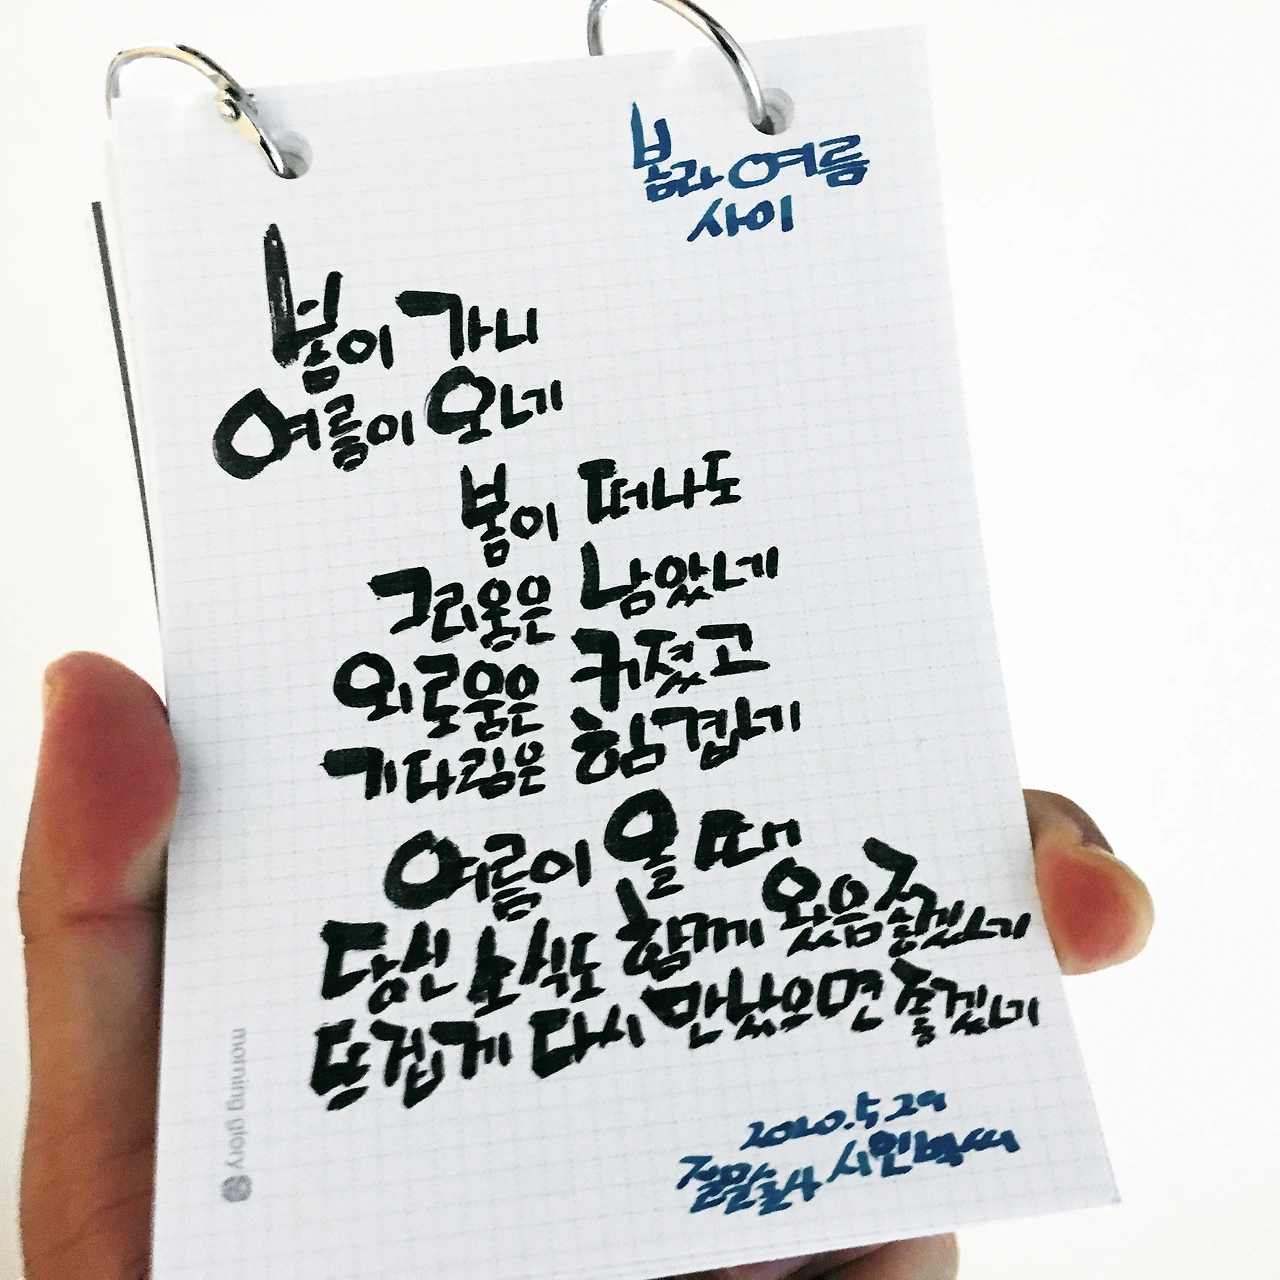 봄과 여름
사이
봄이 가니
여름이 오네
봄이 떠나도
그리움은 남았네
외로움은 커졌고
기다림은 힘겹네
여름이 올 때
당신 소식도 함께 왔음 좋겠네
뜨겁게 다시 만났으면 좋겠네
2020.5.29
시인
morning glory